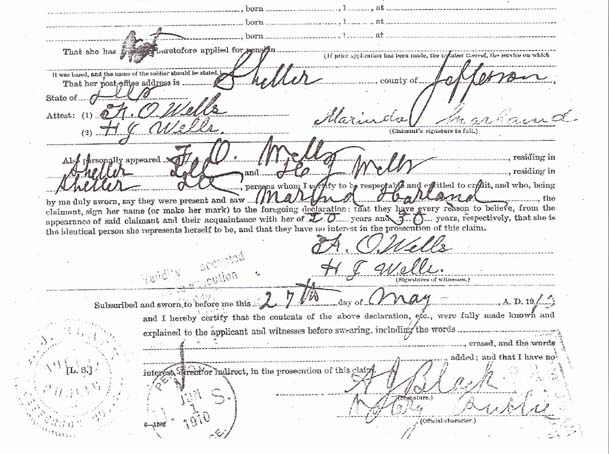 , born , 1 , at
, born , 1 , at
, born , 1 , at
That she has not heretofore applied for pension
(If prior application has been made, the number thereof, the service on which
it was based, and the name of the soldier should be stated.)
That her post-office address is Sheller county of Jefferson,
State of Ills
Attest: (1) F. O. Wells
(2) H J Wells.
Marinda Harland.
(Claimant's signature in full.)
Also personally appeared F. O. Wells, residing in
Sheller Ills and H J Wells, residing in
Sheller Ills, persons whom I certify to be respectable and entitled to credit, and who, being
by me duly sworn, say they were present and saw Marind Harland, the
claimant, sign her name (or make her mark) to the foregoing declaration; that they have every reason to believe, from the
appearance of said claimant and their acquaintance with her of 20 years and 30 years, respectively, that she is
the identical person she represents herself to be, and that they have no interest in the prosecution of this claim.
F. O. Wells
H J Wells.
(Signatures of witnesses.)
Validity accepted
Subscribed and sworn to before me this 27th day of May, A. D. 19
and I hereby certify that the contents of the above declaration, etc., were fully made known and
explained to the applicant and witnesses before swearing, including the words
, erased, and the words
, added; and that I have no
interest, direct or indirect, in the prosecution of this claim.
[L. S.]
A J Black
(Signature.)
Notary Public
(Official character.)
PENSION
JUN
1
1910
S.